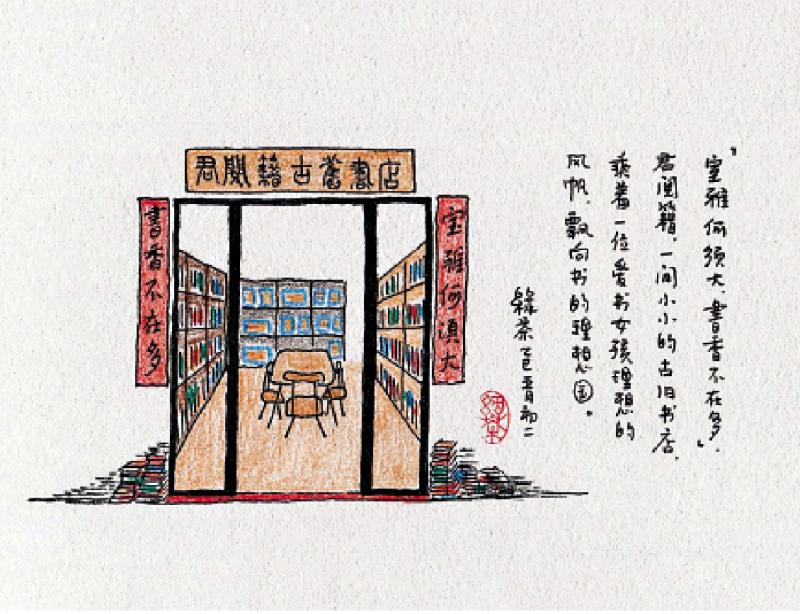 君閱籍古舊書店
室雅何須大
書香不在多
“室雅何须大,書香不在多”,
君阅籍,一间小小的古旧书店,
乘着一位爱书女孩理想的
风帆,飘向书的理想国。
綠茶 乙巳 初二